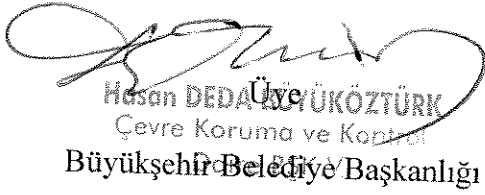 Üye
Hasan DEDA BÜYÜKÖZTÜRK
Çevre Koruma ve Kontrol
Büyükşehir Belediye Başkanlığı